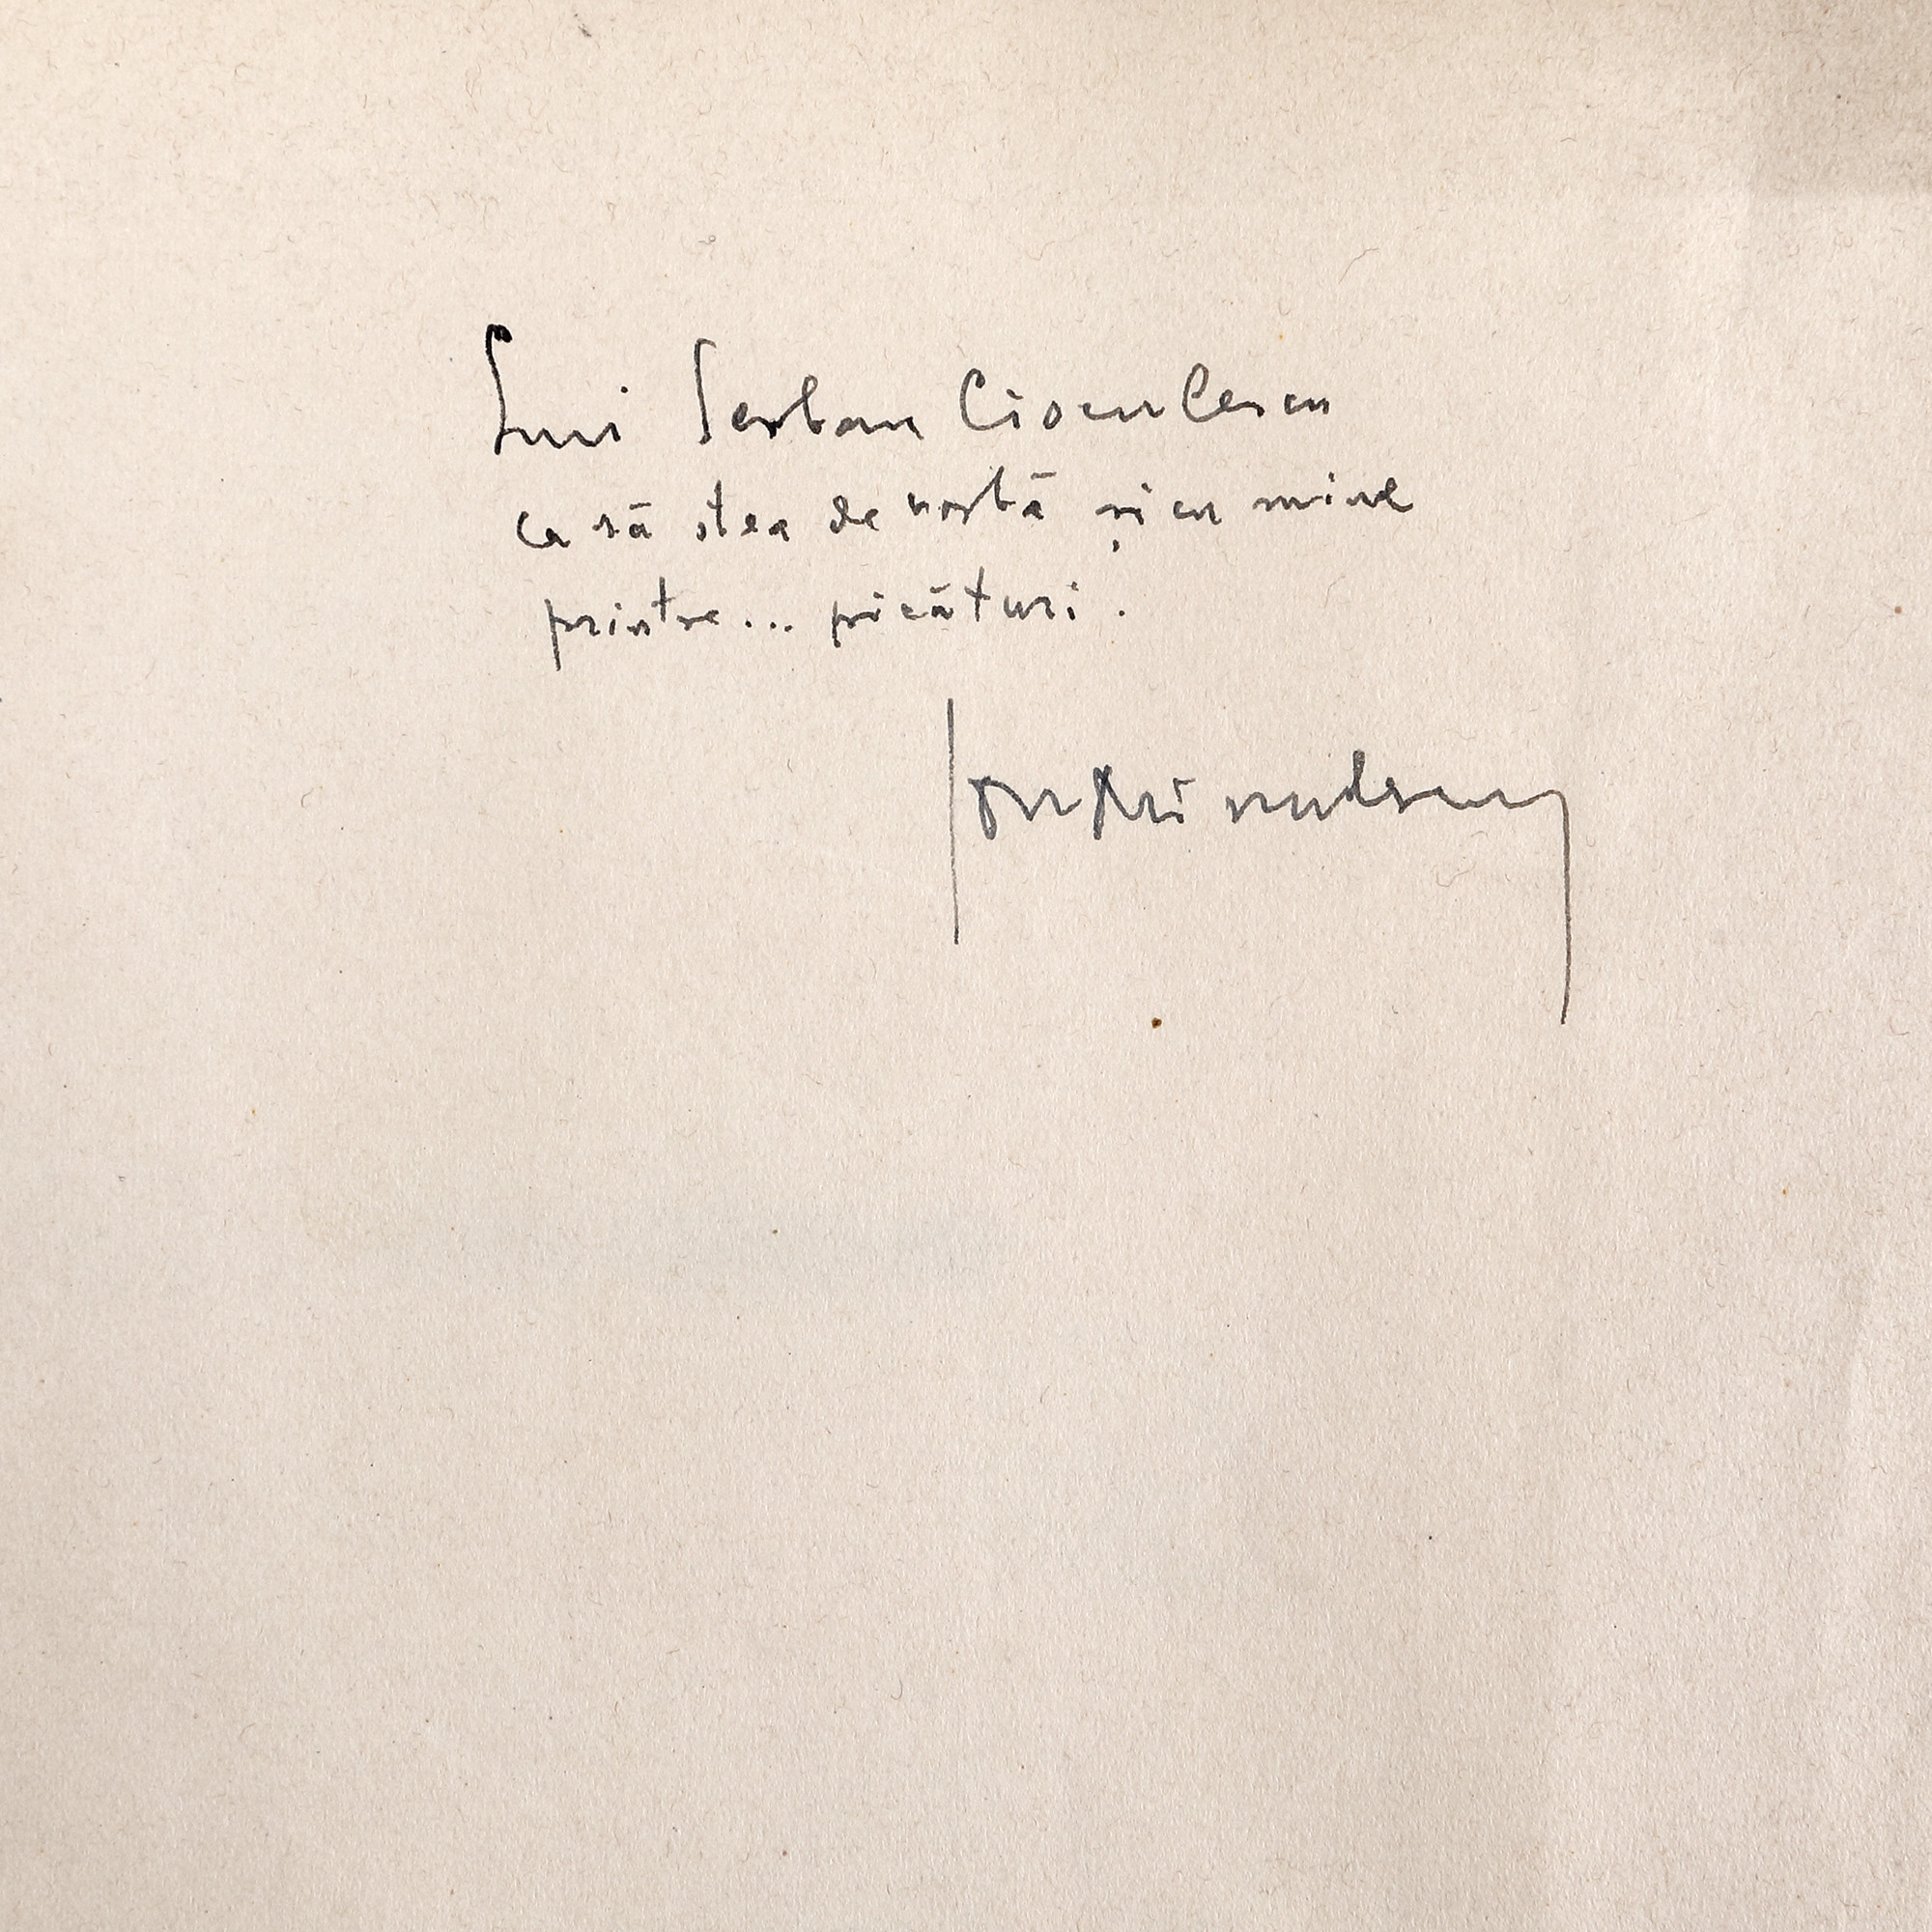 Lui Serban Cioculescu
ca să stea de vorbă și cu mine
printre... picături.
Ion Minulescu